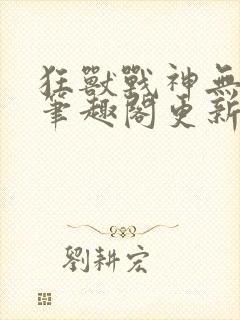 狂獸戰神無
筆趣閣更新
劉耕宏